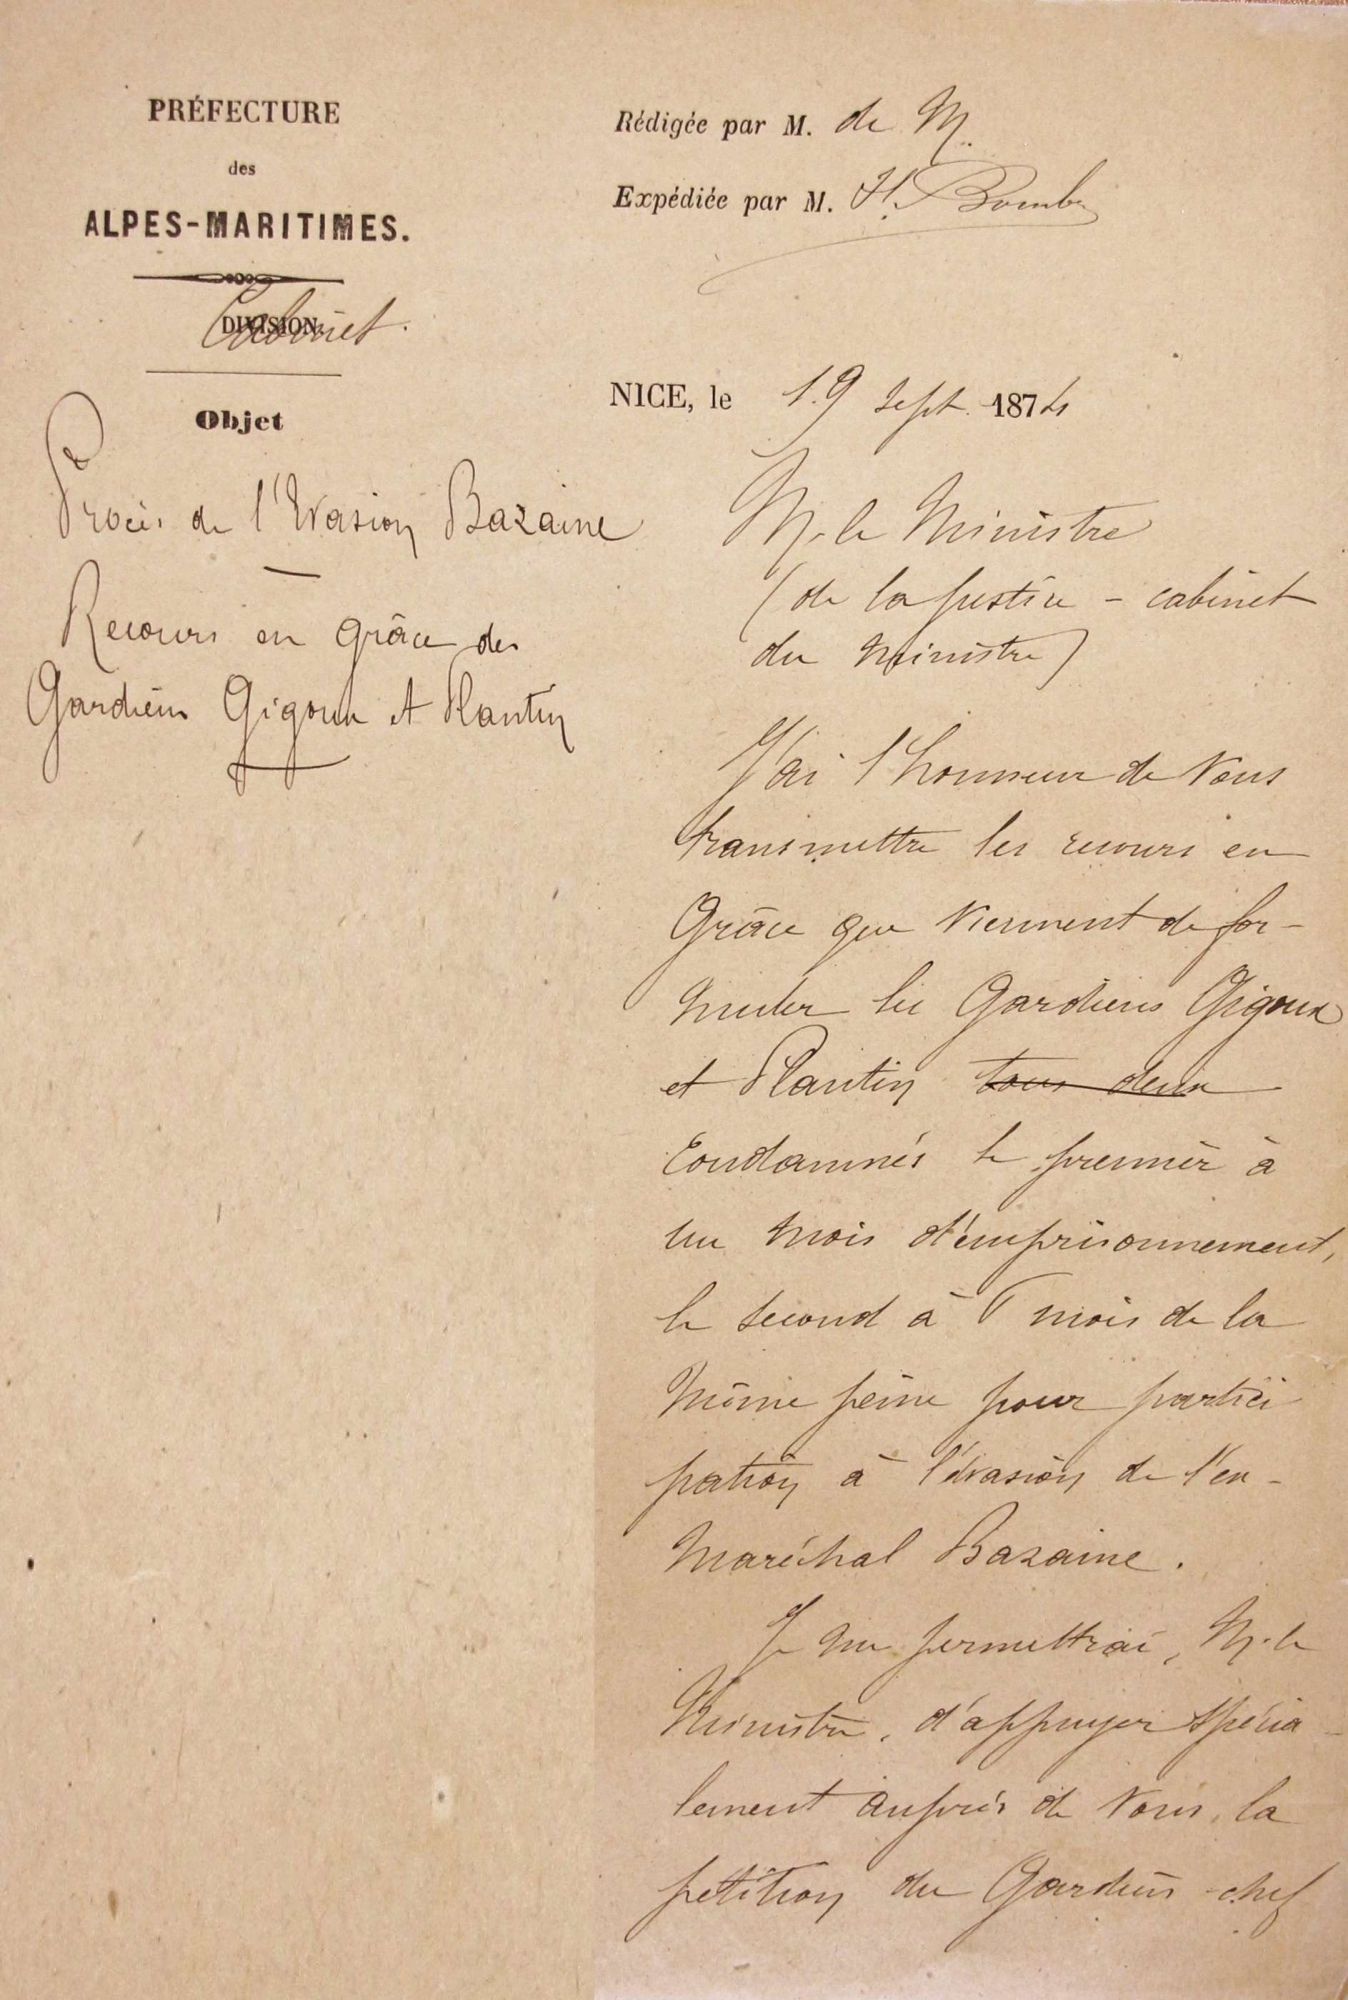 PRÉFECTURE
des
ALPES-MARITIMES.
DIVISION
Cabinet.
Objet
Procès de l'Evasion Bazaine
Recours en grâce des
Gardiens Gigoux et Plantin
Rédigée par M. de M.
Expédiée par M. H.
NICE, le 19 sept. 1874
M. le Ministre
(de la justice - cabinet
du Ministre)
J'ai l'honneur de vous
transmettre les recours en
Grâce que viennent de for-
muler les Gardiens Gigoux
et Plantin tous deux
condamnés le premier à
un mois d'emprisonnement,
le second à mois de la
même peine pour partici
pation à l'évasion de l'ex-
Maréchal Bazaine.
Je me permettrai, M. le
Ministre, d'appuyer spécia
lement auprès de vous, la
pétition du Gardien-chef